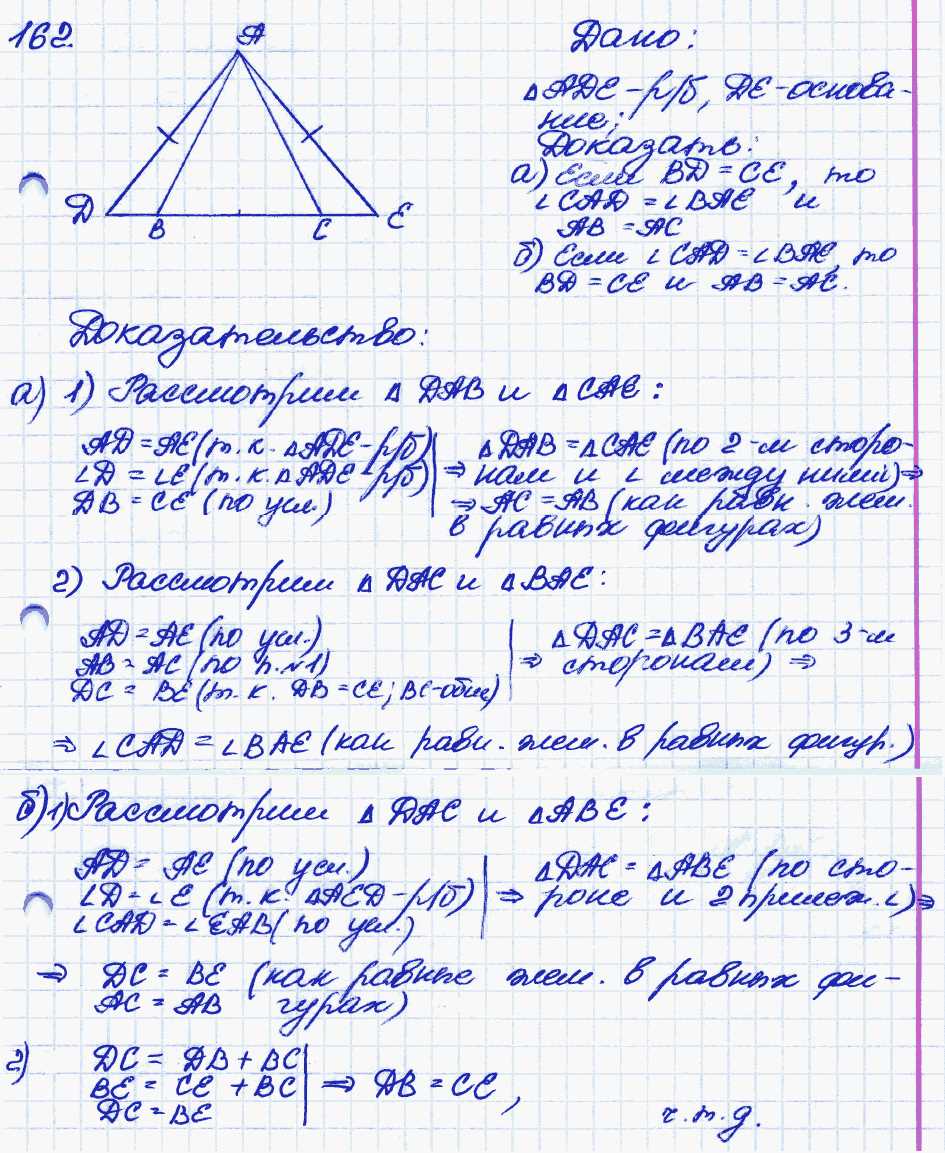 162.
A
D
B
C
E
Дано:
△ADE – р/б, DE – основа-
ние;
Доказать:
а) Если BD = CE, то
∠CAD = ∠BAE и
AB = AC
б) Если ∠CAD = ∠BAE, то
BD = CE и AB = AC.
Доказательство:
а) 1) Рассмотрим △ DAB и △CAE:
AD = AE (т.к. △ADE – р/б)
∠D = ∠E (т.к. △ADE – р/б)
DB = CE (по усл.)
△DAB = △CAE (по 2-м сторо-
⇒ нам и ∠ между ними) ⇒
⇒ AC = AB (как равн. элем.
в равных фигурах)
2) Рассмотрим △ DAC и △BAE:
AD = AE (по усл.)
AB = AC (по п.№1)
DC = BE (т.к. DB = CE; BC – общ)
△DAC = △BAE (по 3-м
⇒ сторонам) ⇒
⇒ ∠CAD = ∠BAE (как равн. элем. в равных фигур.)
б) 1) Рассмотрим △ DAC и △ABE:
AD = AE (по усл.)
∠D = ∠E (т.к. △AED – р/б)
∠CAD = ∠EAB (по усл.)
△DAC = △ABE (по сто-
⇒ роне и 2 прилеж. ∠) ⇒
⇒ DC = BE (как равные элем. в равных фи-
AC = AB гурах)
2) DC = DB + BC
BE = CE + BC
DC = BE
⇒ DB = CE,
ч.т.д.